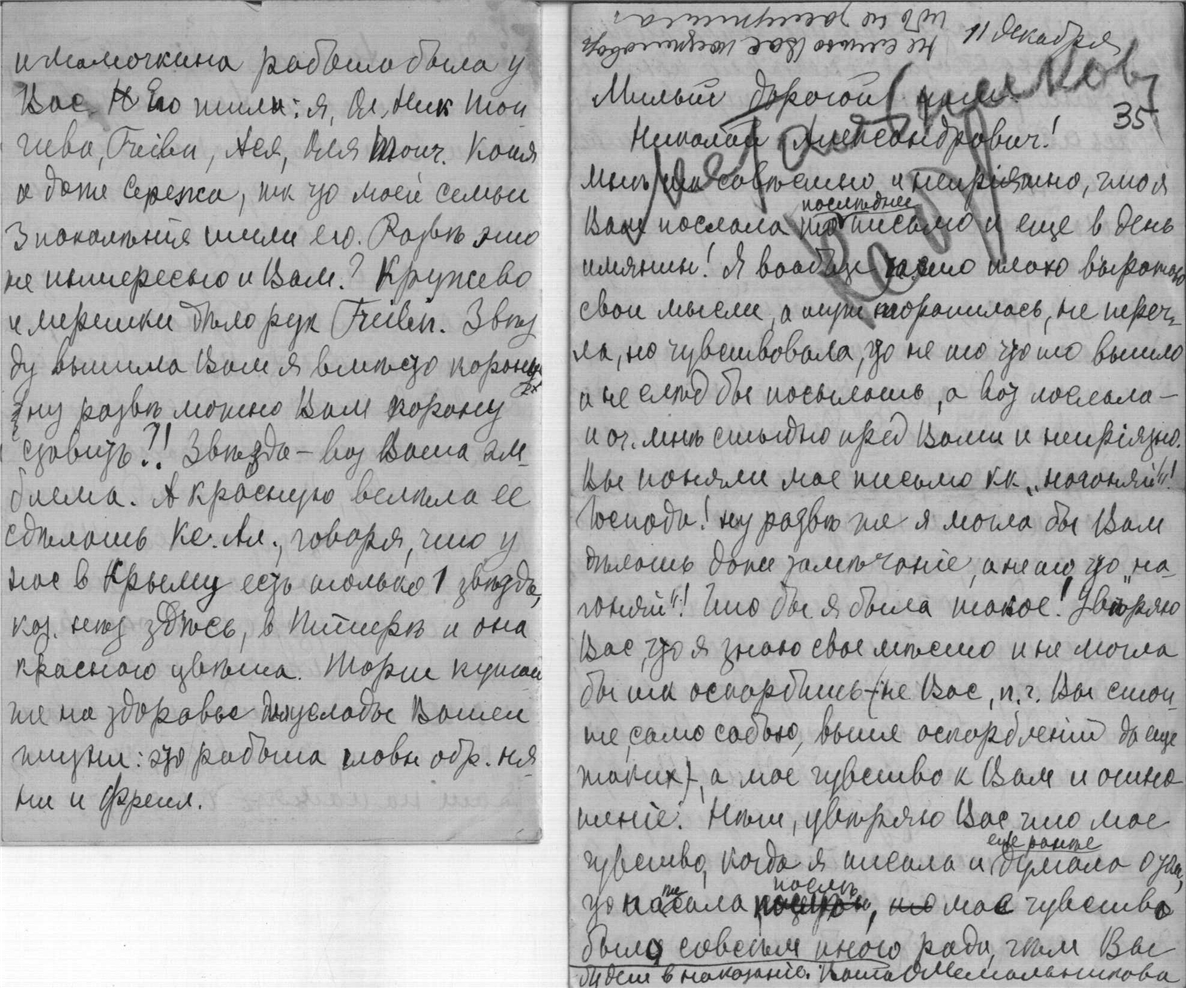 и мамочкина работа была у
Вас. Его шили: я, Ол. Ник. Тол
чева, Freibn, Ася, Оля Толч. Коля
и даже Сережа, тк что моей семьи
3 поколѣнія шили его. Развѣ это
не интересно и Вам? Кружево
и мережки дѣло рук Freibn. Звѣз
ду вышила Вам я вмѣсто короны
ну развѣ можно Вам корону
ставить?! Звѣзда – вот Ваша эм-
блема. А красную велѣла ее
сдѣлать Кс. Ал., говоря, что у
нас в Крыму есть только 1 звѣзда,
кот. нѣт здѣсь, в Питерѣ и она
красного цвѣта. Торт кушай
те на здоровье для услады Вашей
жизни: это работа главн обр. ня
ни и Фрейл.
11 декабря
35
Милый дорогой наш
Николай Александрович!
Мнѣ так совѣстно и непріятно, что я
Вам послала то последнее письмо и еще в день
имянин! Я вообще часто плохо выражаю
свои мысли, а тут торопилась, не переч-
ла, но чувствовала, что не то что-то вышло
и не след бы посылать, а вот послала –
и оч. мнѣ стыдно пред Вами и непріязно.
Вы поняли мое письмо кк „нагоняй"!
Господи! ну развѣ же я могла бы Вам
дѣлать даже замѣчаніе, а не то, что „на-
гоняй"! Что бы я была такое! Увѣряю
Вас, что я знаю свое мѣсто и не могла
бы так оскорбить (не Вас, п.ч. Вы стои-
те, само собою, выше оскорбленій да еще
таких), а мое чувство к Вам и отно
шеніе. Нѣт, увѣряю Вас что мое
чувство, когда я писала и еще ранѣе думала о том,
что написала послѣ, мое чувство
было совсѣм иного рода, чѣм Вы